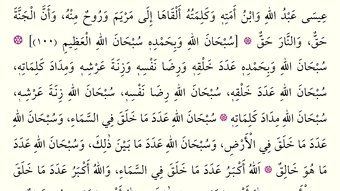 عِيسَى عَبْدُ اللهِ وَابْنُ أَمَتِهِ وَكَلِمَتُهُ أَلْقَاهَا إِلَى مَرْيَمَ وَرُوحٌ مِنْهُ، وَأَنَّ الْجَنَّةَ
حَقٌّ، وَالنَّارَ حَقٌّ ۞ [سُبْحَانَ اللهِ وَبِحَمْدِهِ سُبْحَانَ اللهِ الْعَظِيمِ (١٠٠)] ۞
سُبْحَانَ اللهِ وَبِحَمْدِهِ عَدَدَ خَلْقِهِ وَرِضَا نَفْسِهِ وَزِنَةَ عَرْشِهِ وَمِدَادَ كَلِمَاتِهِ،
سُبْحَانَ اللهِ عَدَدَ خَلْقِهِ، سُبْحَانَ اللهِ رِضَا نَفْسِهِ، سُبْحَانَ اللهِ زِنَةَ عَرْشِهِ،
سُبْحَانَ اللهِ مِدَادَ كَلِمَاتِهِ ۞ سُبْحَانَ اللهِ عَدَدَ مَا خَلَقَ فِي السَّمَاءِ، وَسُبْحَانَ اللهِ
عَدَدَ مَا خَلَقَ فِي الْأَرْضِ، وَسُبْحَانَ اللهِ عَدَدَ مَا بَيْنَ ذٰلِكَ، وَسُبْحَانَ اللهِ عَدَدَ
مَا هُوَ خَالِقٌ ۞ اَللهُ أَكْبَرُ عَدَدَ مَا خَلَقَ فِي السَّمَاءِ، وَاللهُ أَكْبَرُ عَدَدَ مَا خَلَقَ